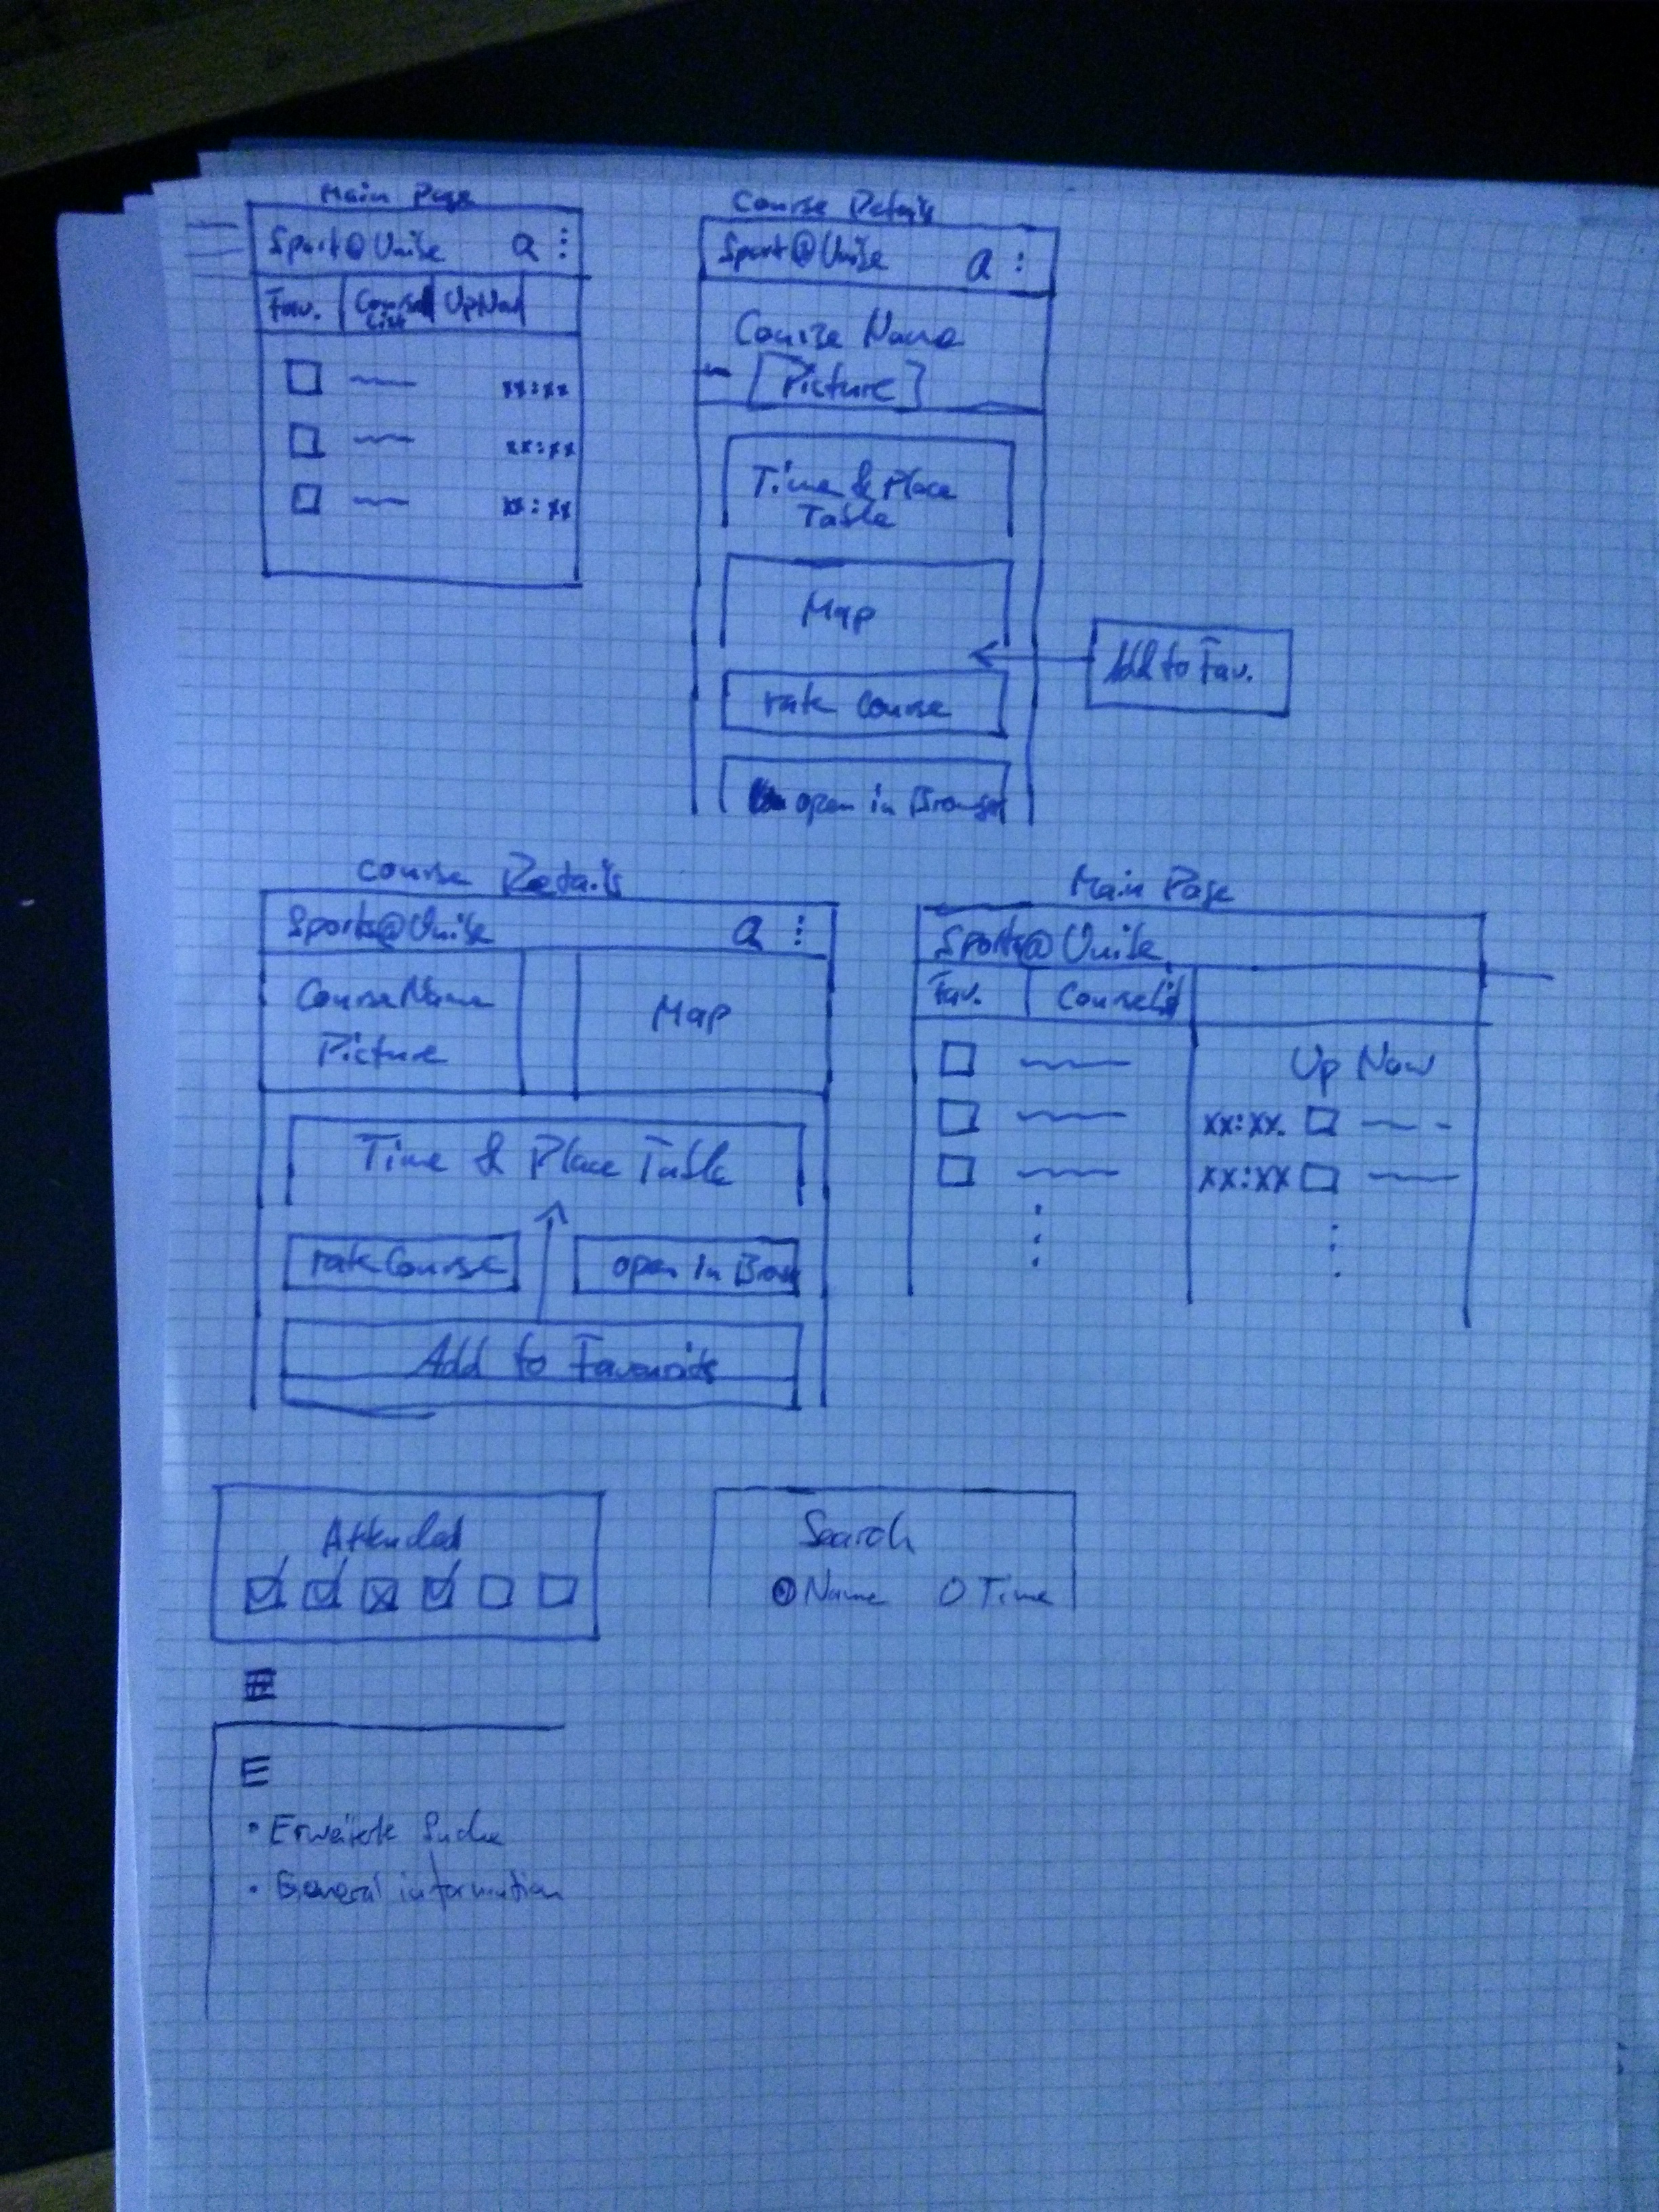 Main Page
Sport@Unibe
Fav. Course List UpNow
xx:xx
xx:xx
xx:xx
Course Details
Sport@Unibe
Course Name
[Picture]
Time & Place
Table
Map
Add to Fav.
rate course
open in Browser
Course Details
Sports@Unibe
CourseName
Picture
Map
Time & Place Table
rate Course
open in Brow
Add to Favourite
Main Page
Sports@Unibe
Fav. Courselist
Up Now
xx:xx.
xx:xx
Attended
Search
Name Time
• Erweiterte Suche
• General information